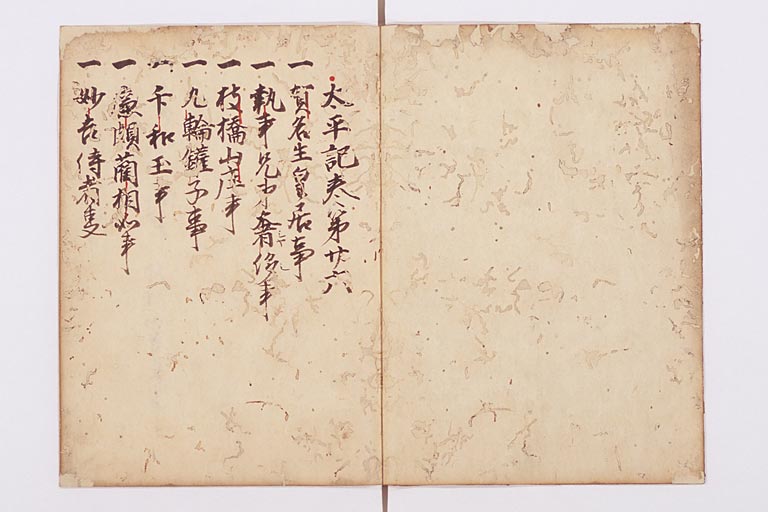 太平記巻第廿六
一 賀名生皇居事
一 執事兄弟奢侈事
一 枝橋山庄事
一 九輪鑵子事
一 卞和玉事
一 廉頗藺相如事
一 妙吉侍者